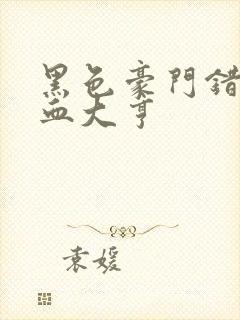 黑色豪門錯
血大亨
袁媛